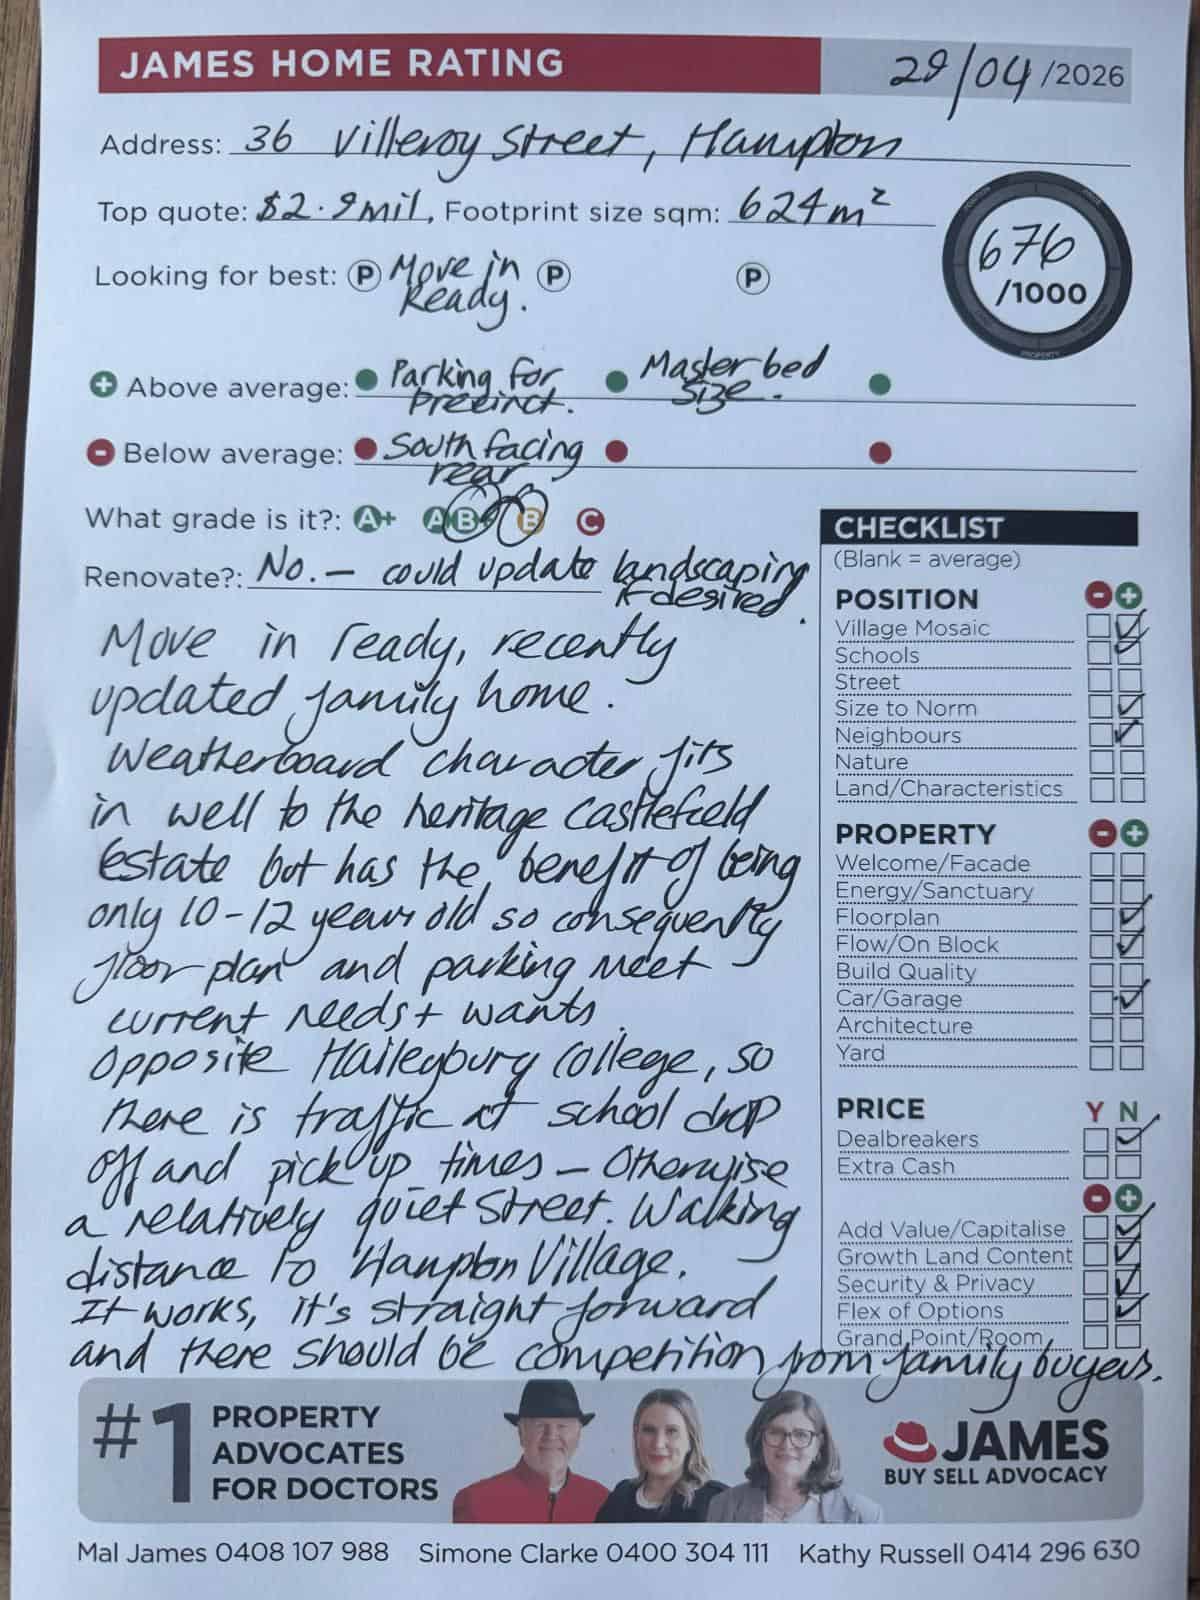 JAMES HOME RATING
29/04/2026
Address: 36 Villeroy Street, Hampton
Top quote: $2.9mil, Footprint size sqm: 624m²
676
/1000
PROPERTY
Looking for best: P Move in Ready. P P
+ Above average: Parking for precinct. Master bed size.
- Below average: South facing rear
What grade is it?: A+ A B+ B C
Renovate?: No. – could update landscaping if desired.
Move in ready, recently
updated family home.
Weatherboard character fits
in well to the heritage Castlefield
Estate but has the benefit of being
only 10-12 years old so consequently
floor plan and parking meet
current needs + wants.
Opposite Haileybury College, so
there is traffic at school drop
off and pick up times – Otherwise
a relatively quiet street. Walking
distance to Hampton Village.
It works, it's straight forward
and there should be competition from family buyers.
CHECKLIST
(Blank = average)
POSITION - +
Village Mosaic
Schools
Street
Size to Norm
Neighbours
Nature
Land/Characteristics
PROPERTY - +
Welcome/Facade
Energy/Sanctuary
Floorplan
Flow/On Block
Build Quality
Car/Garage
Architecture
Yard
PRICE Y N
Dealbreakers
Extra Cash
- +
Add Value/Capitalise
Growth Land Content
Security & Privacy
Flex of Options
Grand Point/Room
#1 PROPERTY
ADVOCATES
FOR DOCTORS
JAMES
BUY SELL ADVOCACY
Mal James 0408 107 988 Simone Clarke 0400 304 111 Kathy Russell 0414 296 630